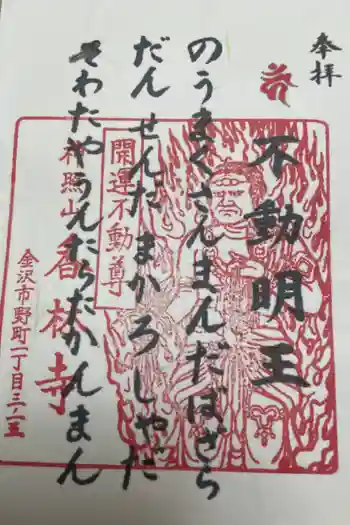 奉拝
不動明王
のうまくさんまんだばざら
だんせんだまかろしやだ
そわたやうんたらたかんまん
開運不動尊
祈照山香林寺
金沢市野町一丁目三ノ十五